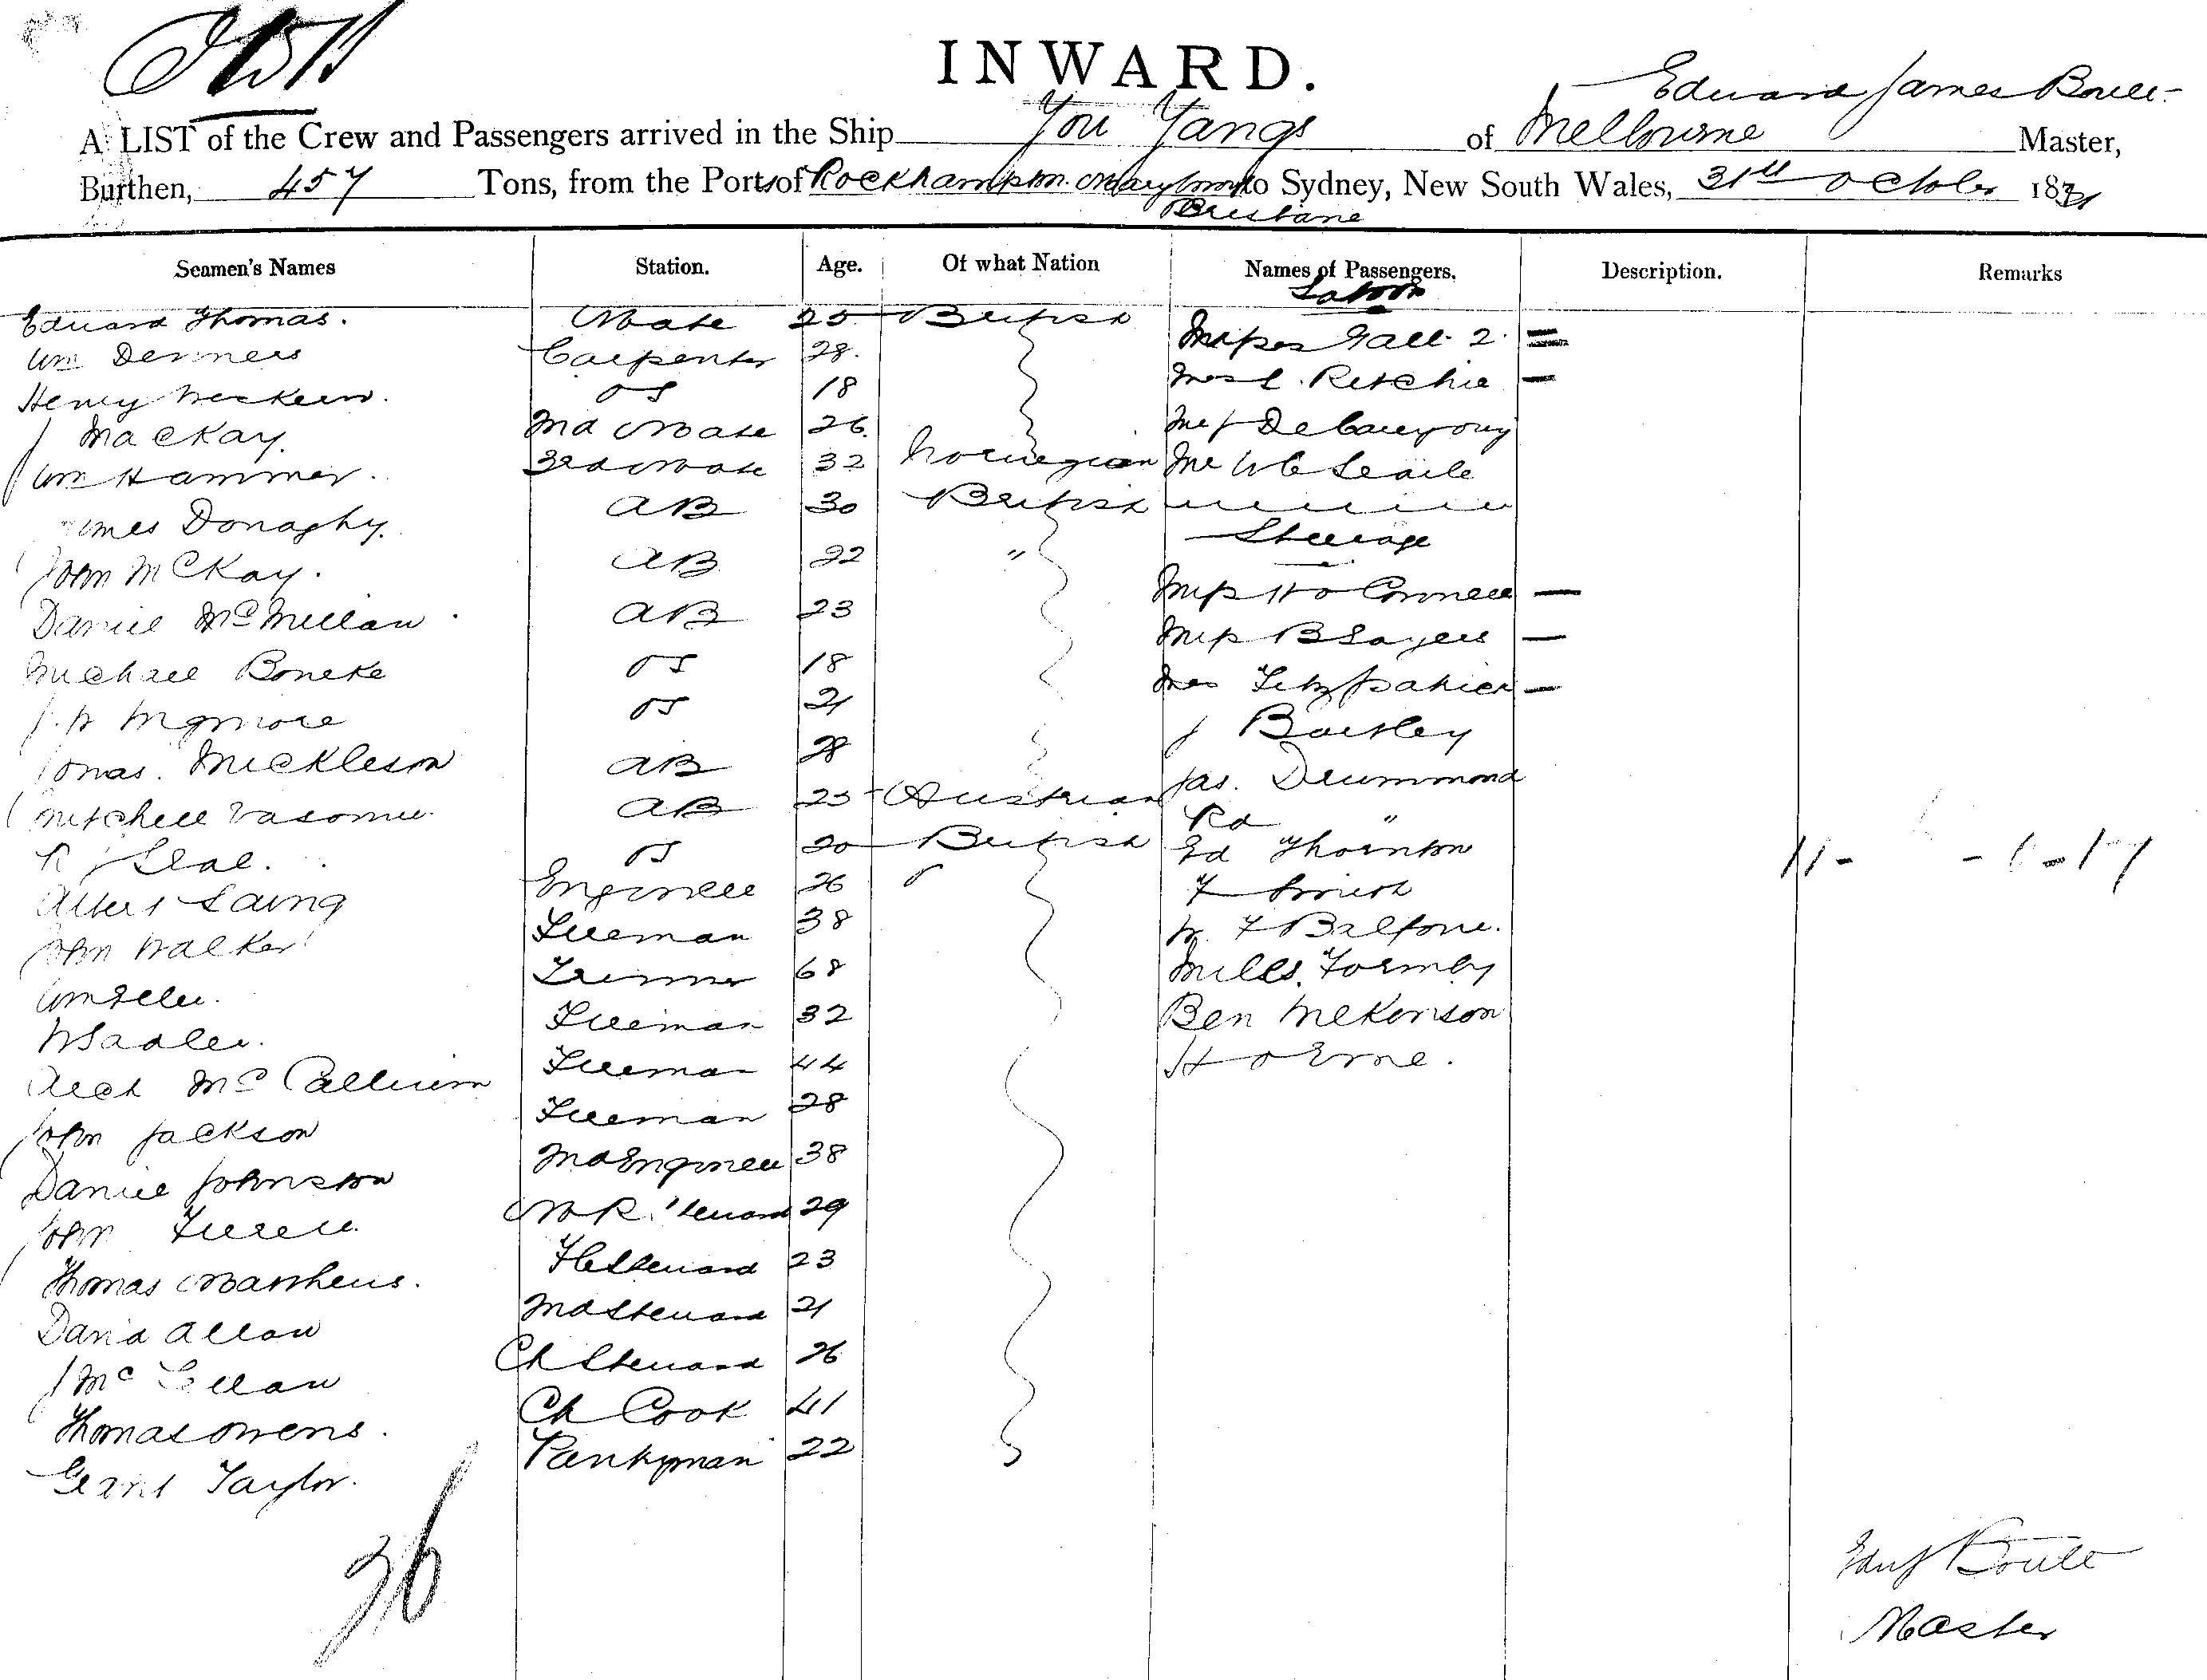 INWARD.
Edward James Boult
A LIST of the Crew and Passengers arrived in the Ship You Yangs of Melbourne Master,
Burthen, 457 Tons, from the Ports of Rockhampton Maryboro to Sydney, New South Wales, 31st October 1871
Brisbane
Seamen's Names Station. Age. Of what Nation Names of Passengers. Description. Remarks
Saloon
Edward Thomas. Mate 25 British
Wm Carpenter 28. Gall. 2
Henry OS 18 Ritchie
J MacKay. 2nd Mate 26
Wm Hammer. 3rd Mate 32 Norwegian Mr
James Donaghy. AB 30 British
Steerage
John McKay. AB 22 "
Daniel McMillan AB 23 Connell
Michael OS 18 B Sayers
OS 21 Mrs Fitzpatrick
Jonas. Mickleson AB 28 J Bartley
Mitchell AB 25 Austrian Jas. Drummond
Rd "
R OS 20 British Ed Thornton
Albert Laing Engineer 26 F Smith
John Walker Fireman 38 W. F Balfour.
Wm Trimmer 68 Formby
W Sadler. Fireman 32 Ben McKenson
Arch McCallum Fireman 44 H
John Jackson Fireman 28
Daniel Johnston 2nd Engineer 38
John Steward 29
Thomas Matthews. F C Steward 23
David Allan 2nd Steward 21
J Mc Ch Steward 26
Thomas Owens. Ch Cook 41
Grant Taylor. Pantryman 22
26
Edw J Boult
Master